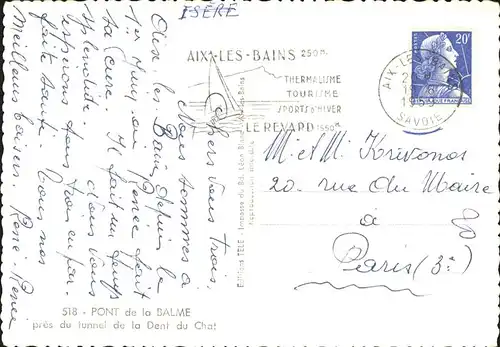 ISERE
AIX-LES-BAINS 250m
THERMALISME
TOURISME
SPORTS D'HIVER
LE REVARD 1550m
20F
SAVOIE
Chers vous trois,
Nous sommes à
Aix les Bains depuis le
1er Juin où Renée fait
la cure. Il fait un temps
splendide. Nous vous
espérons tous trois en par-
faite santé. Tous nos
Meilleurs baisers. René Renée
Editions TELE
M et Mme Krivonos
20. rue du Maire
à
Paris (3e)
518 - PONT de la BALME
près du tunnel de la Dent du Chat